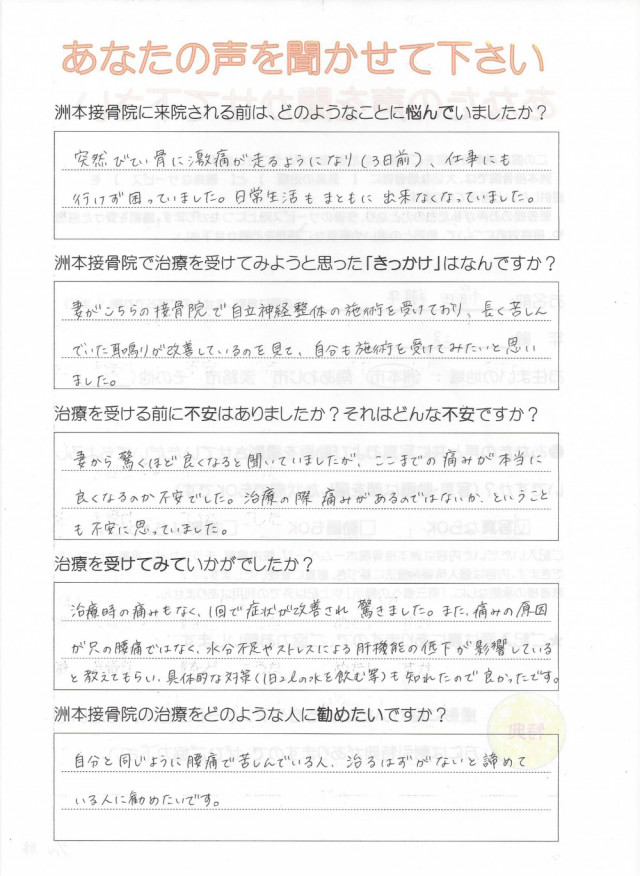 あなたの声を聞かせて下さい
洲本接骨院に来院される前は、どのようなことに悩んでいましたか？
突然びてい骨に激痛が走るようになり(3日前)、仕事にも
行けず困っていました。日常生活もまともに出来なくなっていました。
洲本接骨院で治療を受けてみようと思った「きっかけ」はなんですか？
妻がこちらの接骨院で自立神経整体の施術を受けており、長く苦しん
でいた耳鳴りが改善しているのを見て、自分も施術を受けてみたいと思い
ました。
治療を受ける前に不安はありましたか？それはどんな不安ですか？
妻から驚くほど良くなると聞いていましたが、ここまでの痛みが本当に
良くなるのか不安でした。治療の際痛みがあるのではないか、ということ
も不安に思っていました。
治療を受けてみていかがでしたか？
治療時の痛みもなく、1回で症状が改善され驚きました。また、痛みの原因
が只の腰痛ではなく、水分不足やストレスによる肝機能の低下が影響している
と教えてもらい、具体的な対策(1日2Lの水を飲む等)も知れたので良かったです。
洲本接骨院の治療をどのような人に勧めたいですか？
自分と同じように腰痛で苦しんでいる人、治るはずがないと諦めて
いる人に勧めたいです。
特典